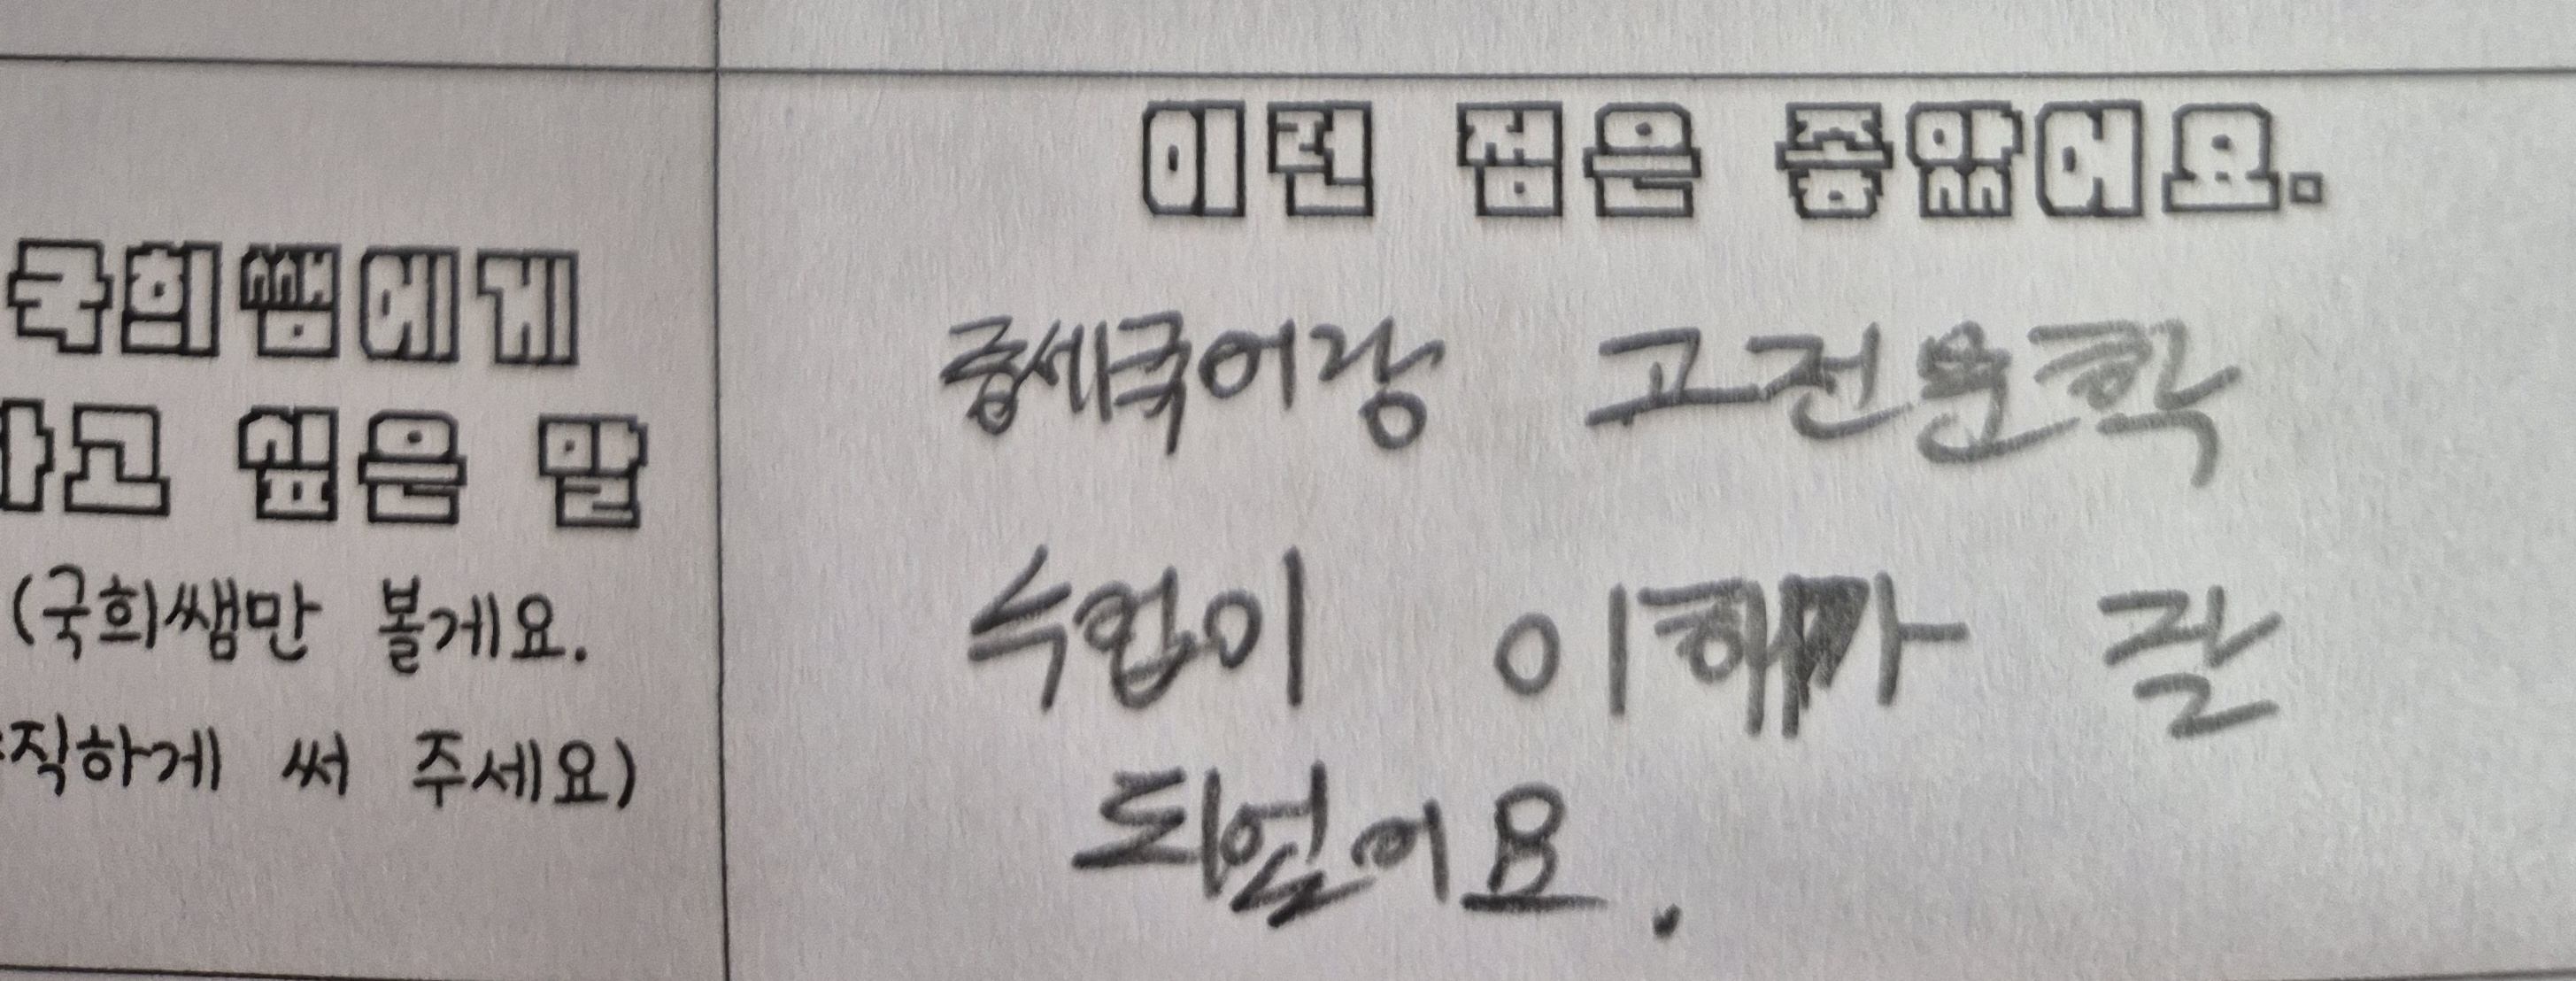 국희쌤에게
하고 싶은 말
(국희쌤만 볼게요.
솔직하게 써 주세요)
이런 점은 좋았어요.
중세국어랑 고전문학
수업이 이해가 잘
되었어요.